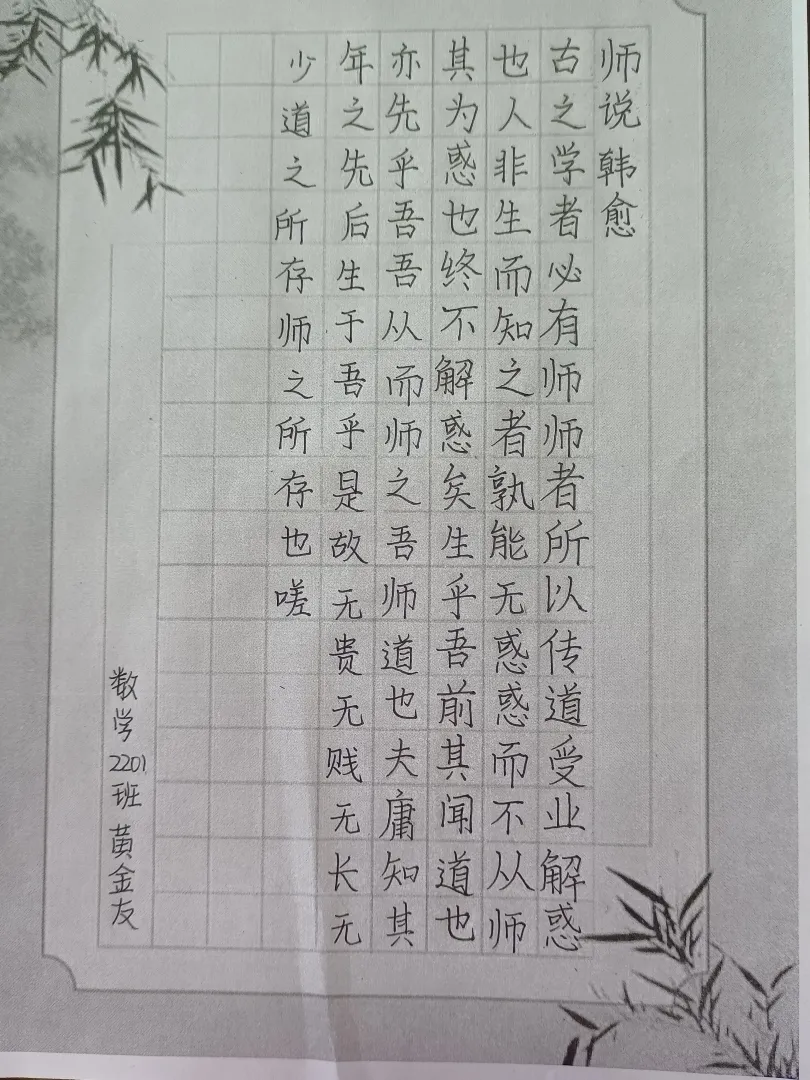 师说 韩愈
古之学者必有师师者所以传道受业解惑
也人非生而知之者孰能无惑惑而不从师
其为惑也终不解惑矣生乎吾前其闻道也
亦先乎吾吾从而师之吾师道也夫庸知其
年之先后生于吾乎是故无贵无贱无长无
少道之所存师之所存也嗟
数学2201班 黄金友